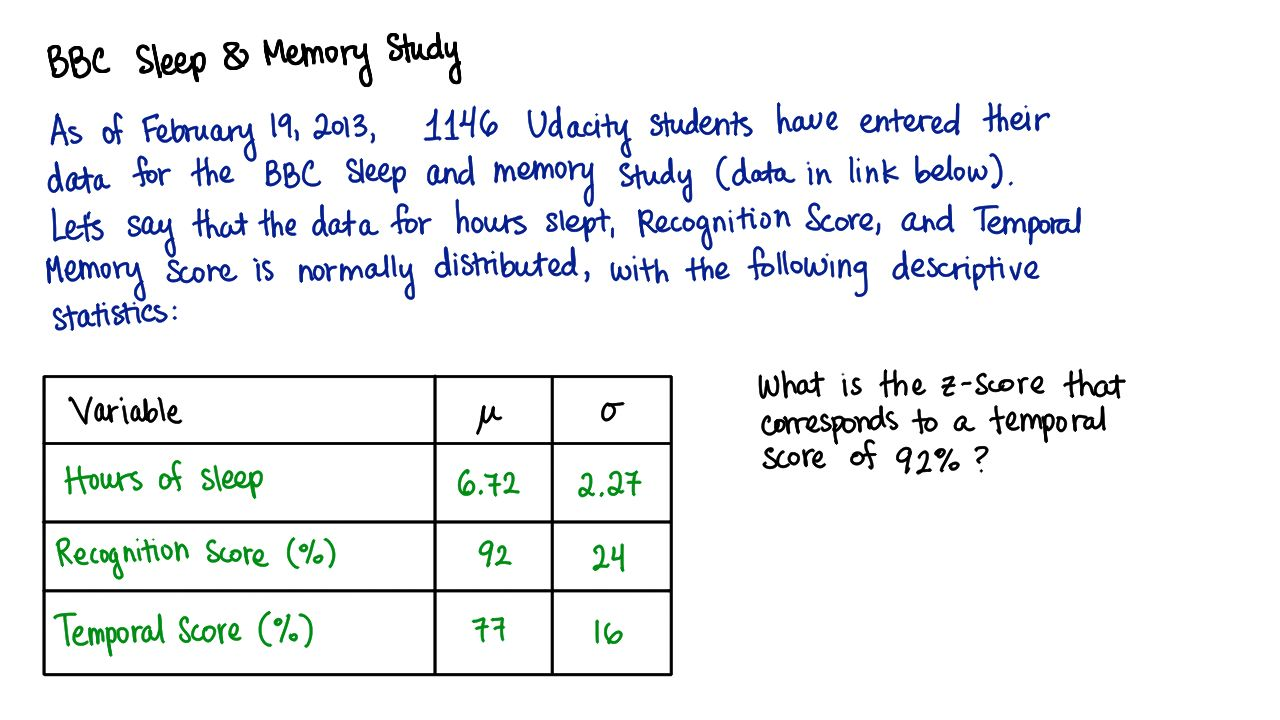 BBC Sleep & Memory Study
As of February 19, 2013, 1146 Udacity students have entered their
data for the BBC Sleep and memory Study (data in link below).
Let's say that the data for hours slept, Recognition Score, and Temporal
Memory Score is normally distributed, with the following descriptive
statistics:
Variable μ σ
Hours of sleep 6.72 2.27
Recognition Score (%) 92 24
Temporal Score (%) 77 16
What is the z-score that
corresponds to a temporal
score of 92% ?